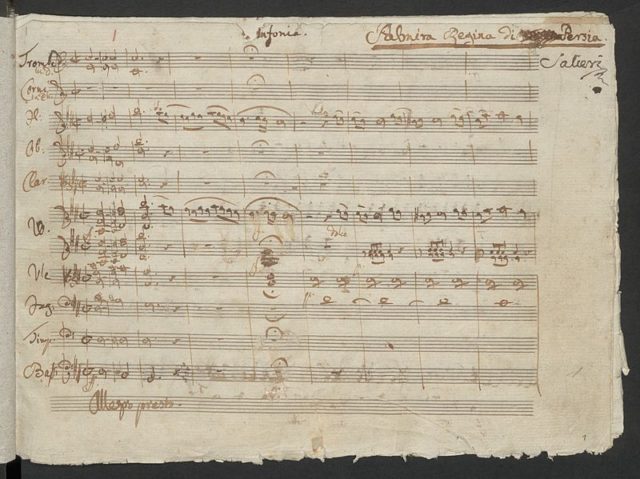 Sinfonia.
Palmira Regina di Persia.
Salieri
Trombe
Corni
Fl.
Ob.
Clar
W.
Vle
Fag.
Timp
Bassi
Allegro presto.
1